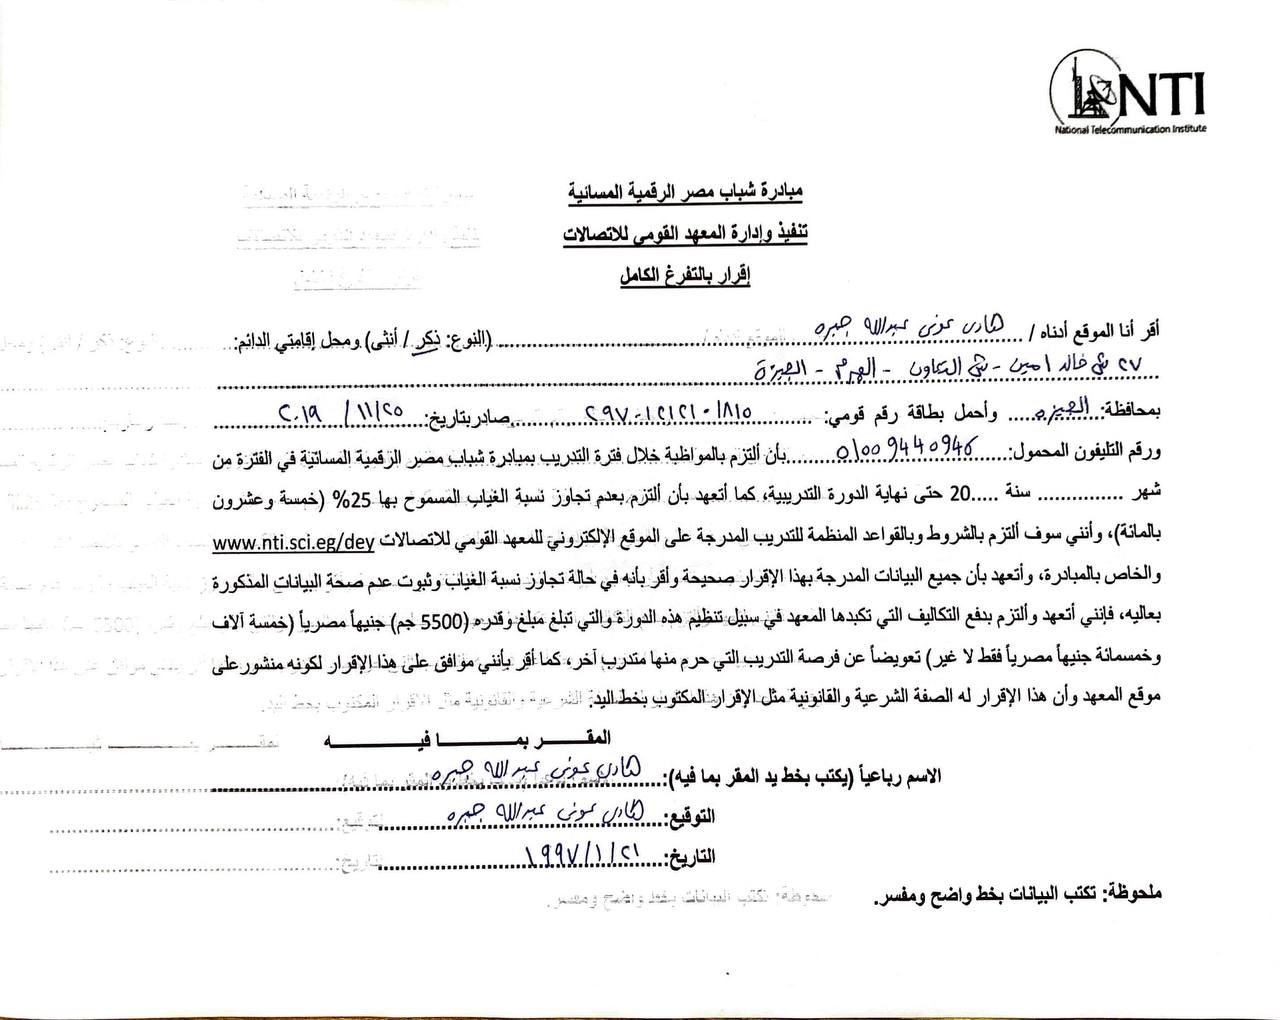 NTI
National Telecommunication Institute
مبادرة شباب مصر الرقمية المسائية
تنفيذ وإدارة المعهد القومي للاتصالات
إقرار بالتفرغ الكامل
أقر أنا الموقع أدناه / عونى عبدالله جبره (النوع: ذكر / أنثى) ومحل إقامتي الدائم:
٢٧ ش خالد امين - ش التعاون - الهرم - الجيزة
بمحافظة: الجيزه وأحمل بطاقة رقم قومي: صادر بتاريخ: ٢٠١٩/١١/٢٥
ورقم التليفون المحمول: 01009440946 بأن ألتزم بالمواظبة خلال فترة التدريب بمبادرة شباب مصر الرقمية المسائية في الفترة من
شهر .............. سنة .....20 حتى نهاية الدورة التدريبية، كما أتعهد بأن ألتزم بعدم تجاوز نسبة الغياب المسموح بها 25% (خمسة وعشرون
بالمائة)، وأنني سوف ألتزم بالشروط وبالقواعد المنظمة للتدريب المدرجة على الموقع الإلكتروني للمعهد القومي للاتصالات www.nti.sci.eg/dey
والخاص بالمبادرة، وأتعهد بأن جميع البيانات المدرجة بهذا الإقرار صحيحة وأقر بأنه في حالة تجاوز نسبة الغياب وثبوت عدم صحة البيانات المذكورة
بعاليه، فإنني أتعهد وألتزم بدفع التكاليف التي تكبدها المعهد في سبيل تنظيم هذه الدورة والتي تبلغ مبلغ وقدره (5500 جم) جنيهاً مصرياً (خمسة آلاف
وخمسمائة جنيهاً مصرياً فقط لا غير) تعويضاً عن فرصة التدريب التي حرم منها متدرب آخر، كما أقر بأنني موافق على هذا الإقرار لكونه منشور على
موقع المعهد وأن هذا الإقرار له الصفة الشرعية والقانونية مثل الإقرار المكتوب بخط اليد.
المقر بما فيه
الاسم رباعياً (يكتب بخط يد المقر بما فيه): عونى عبدالله جبره
التوقيع: عونى عبدالله جبره
التاريخ: ١٩٩٧/١/٢١
ملحوظة: تكتب البيانات بخط واضح ومفسر.